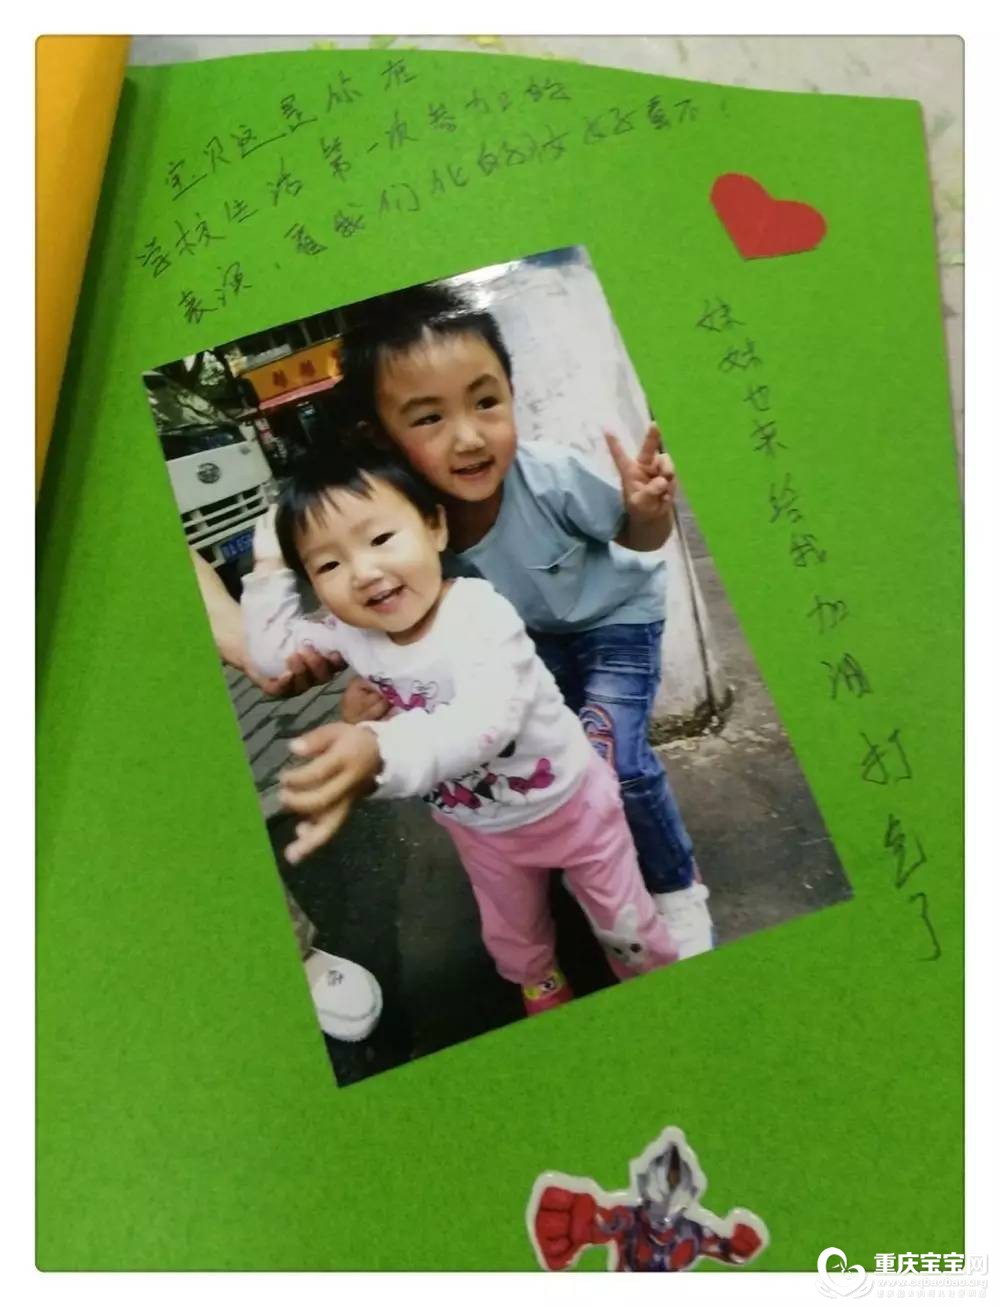 宝贝这是你在
学校生活第一次参加的
表演，看我们化的妆好看不！
妹妹也来给我加油打气了
重庆宝宝网
www.cqbaobao.org